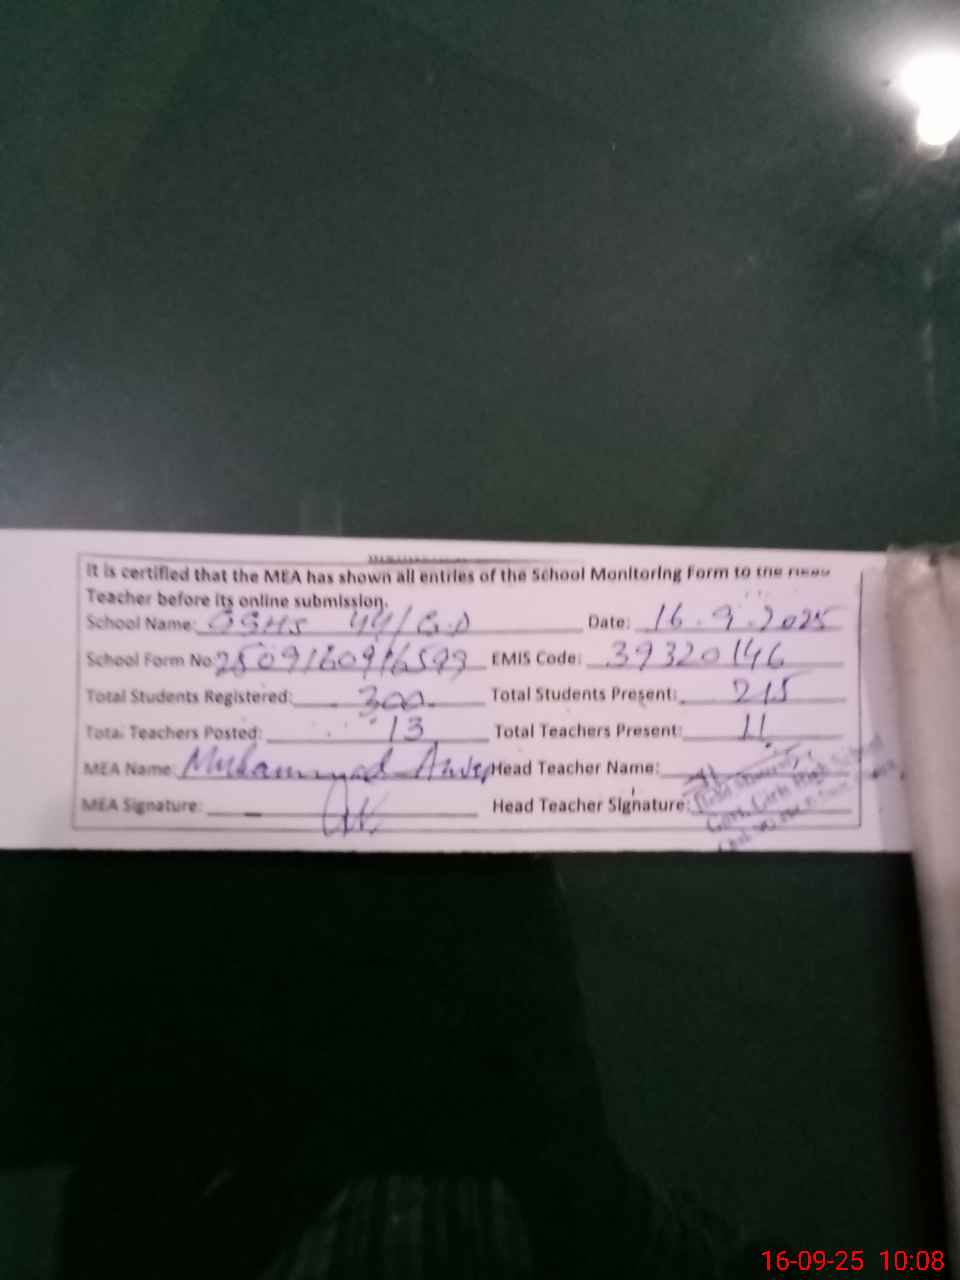 It is certified that the MEA has shown all entries of the School Monitoring Form to the Head
Teacher before its online submission.
School Name: GGHS 44/G.D Date: 16.9.2025
School Form No. EMIS Code: 39320146
Total Students Registered: 300 Total Students Present: 215
Total Teachers Posted: 13 Total Teachers Present: 11
MEA Name: Muhammad Head Teacher Name:
MEA Signature: Head Teacher Signature:
Govt. Girls High School
16-09-25 10:08